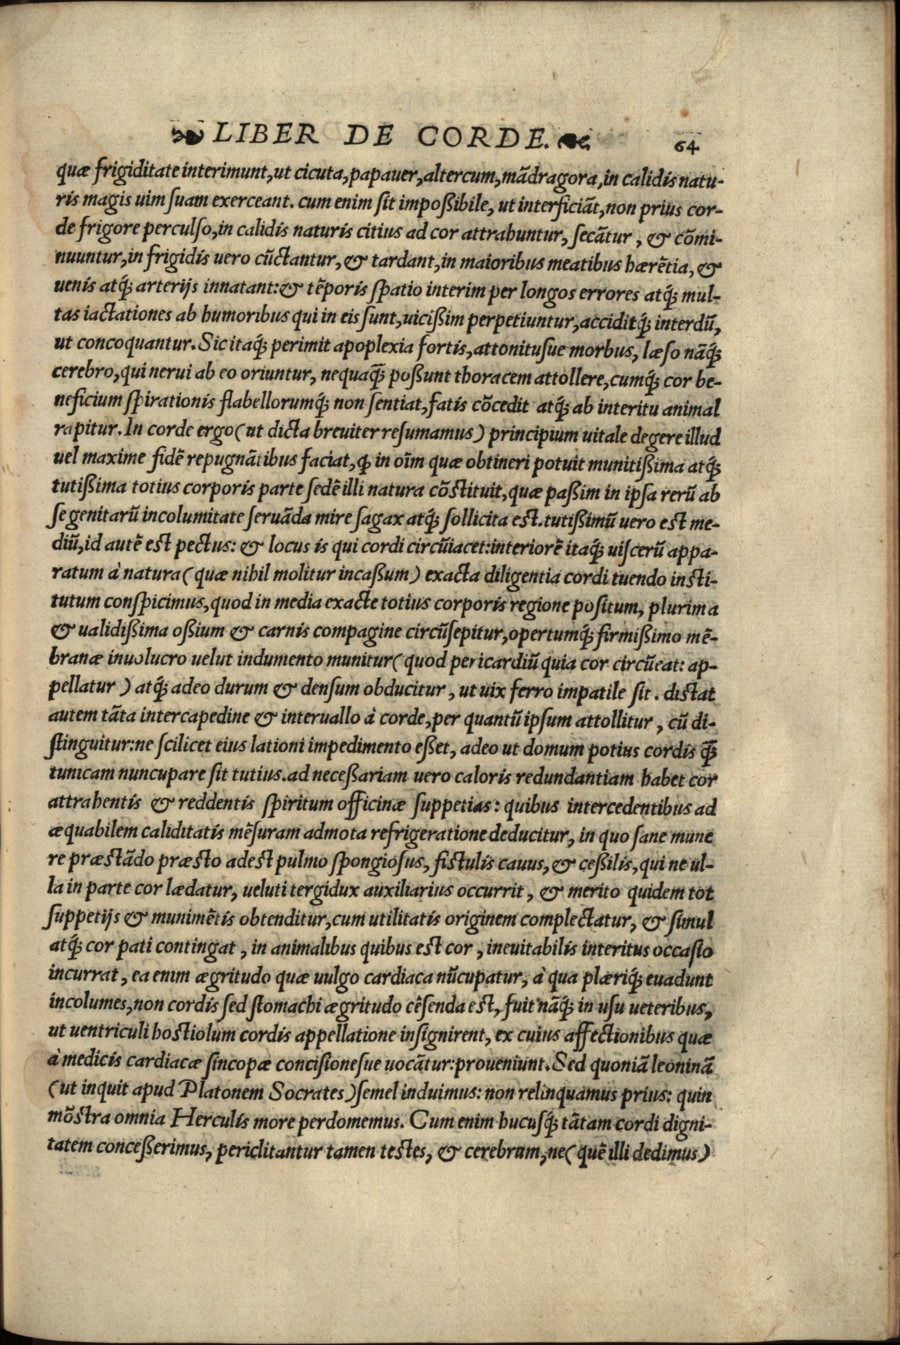 LIBER DE CORDE. 64
quæ frigiditate interimunt, ut cicuta, papauer, altercum, mãdragora, in calidis natu-
ris magis uim suam exerceant. cum enim sit impoßibile, ut interficiãt, non prius cor-
de frigore perculso, in calidis naturis citius ad cor attrahuntur, secãtur, & cõmi-
nuuntur, in frigidis uero cũctantur, & tardant, in maioribus meatibus hærẽtia, &
uenis atq́; arterijs innatant: & tẽporis spatio interim per longos errores atq́; mul-
tas iactationes ab humoribus qui in eis sunt, uicißim perpetiuntur, acciditq́; interdũ,
ut concoquantur. Sic itaq́; perimit apoplexia fortis, attonitusue morbus, læso nãq́;
cerebro, qui nerui ab eo oriuntur, nequaq̃ poßunt thoracem attollere, cumq́; cor be-
neficium spirationis flabellorumq́; non sentiat, fatis cõcedit atq́; ab interitu animal
rapitur. In corde ergo (ut dicta breuiter resumamus) principium uitale degere illud
uel maxime fidẽ repugnãtibus faciat, ꝙ in oĩm quæ obtineri potuit munitißima atq́;
tutißima totius corporis parte sedẽ illi natura cõstituit, quæ paßim in ipsa rerũ ab
se genitarũ incolumitate seruãda mire sagax atq́; sollicita est. tutißimũ uero est me-
diũ, id autẽ est pectus: & locus is qui cordi circũiacet: interiorẽ itaq́; uiscerũ appa-
ratum à natura (quæ nihil molitur incaßum) exacta diligentia cordi tuendo insti-
tutum conspicimus, quod in media exacte totius corporis regione positum, plurima
& ualidißima oßium & carnis compagine circũsepitur, opertumq́; firmißimo mẽ-
branæ inuolucro uelut indumento munitur (quod pericardiũ quia cor circũeat: ap-
pellatur) atq́; adeo durum & densum obducitur, ut uix ferro impatile sit. distat
autem tãta intercapedine & interuallo à corde, per quantũ ipsum attollitur, cũ di-
stinguitur: ne scilicet eius lationi impedimento eßet, adeo ut domum potius cordis q̃
tunicam nuncupare sit tutius. ad neceßariam uero caloris redundantiam habet cor
attrahentis & reddentis spiritum officinæ suppetias: quibus intercedentibus ad
æquabilem caliditatis mẽsuram admota refrigeratione deducitur, in quo sane mune
re præstãdo præsto adest pulmo spongiosus, fistulis cauus, & ceßilis, qui ne ul-
la in parte cor lædatur, ueluti tergidux auxiliarius occurrit, & merito quidem tot
suppetijs & munimẽtis obtenditur, cum utilitatis originem complectatur, & simul
atq́; cor pati contingat, in animalibus quibus est cor, ineuitabilis interitus occasio
incurrat, ea enim ægritudo quæ uulgo cardiaca nũcupatur, à qua plæriq́; euadunt
incolumes, non cordis sed stomachi ægritudo cẽsenda est, fuit nãq́; in usu ueteribus,
ut uentriculi hostiolum cordis appellatione insignirent, ex cuius affectionibus quæ
à medicis cardiacæ sincopæ concisionesue uocãtur: proueniunt. Sed quoniã leoninã
(ut inquit apud Platonem Socrates) semel induimus: non relinquamus prius: quin
mõstra omnia Herculis more perdomemus. Cum enim hucusq́; tãtam cordi digni-
tatem conceßerimus, periclitantur tamen testes, & cerebrum, ne (quẽ illi dedimus)